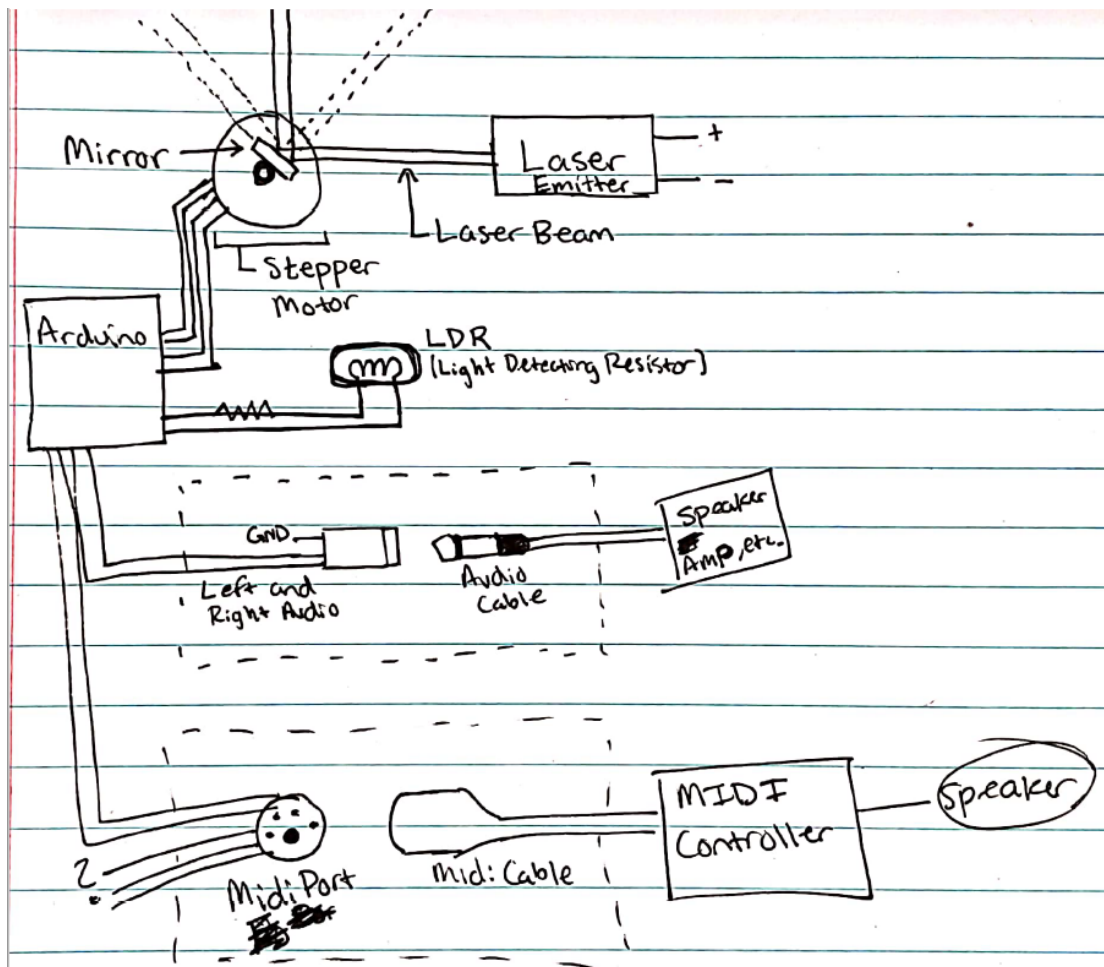 Mirror
Laser
Emitter
+
-
Laser Beam
Stepper
Motor
Arduino
LDR
(Light Detecting Resistor)
GND
Left and
Right Audio
Audio
Cable
Speaker
Amp, etc.
?
Midi Port
Midi Cable
MIDI
Controller
Speaker